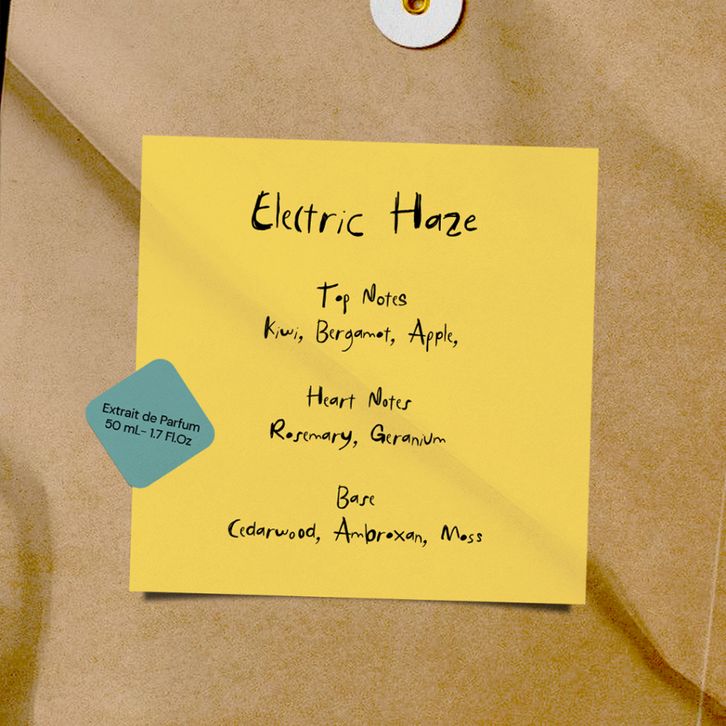 Electric Haze
Top Notes
Kiwi, Bergamot, Apple,
Heart Notes
Rosemary, Geranium
Extrait de Parfum
50 mL- 1.7 Fl.Oz
Base
Cedarwood, Ambroxan, Moss